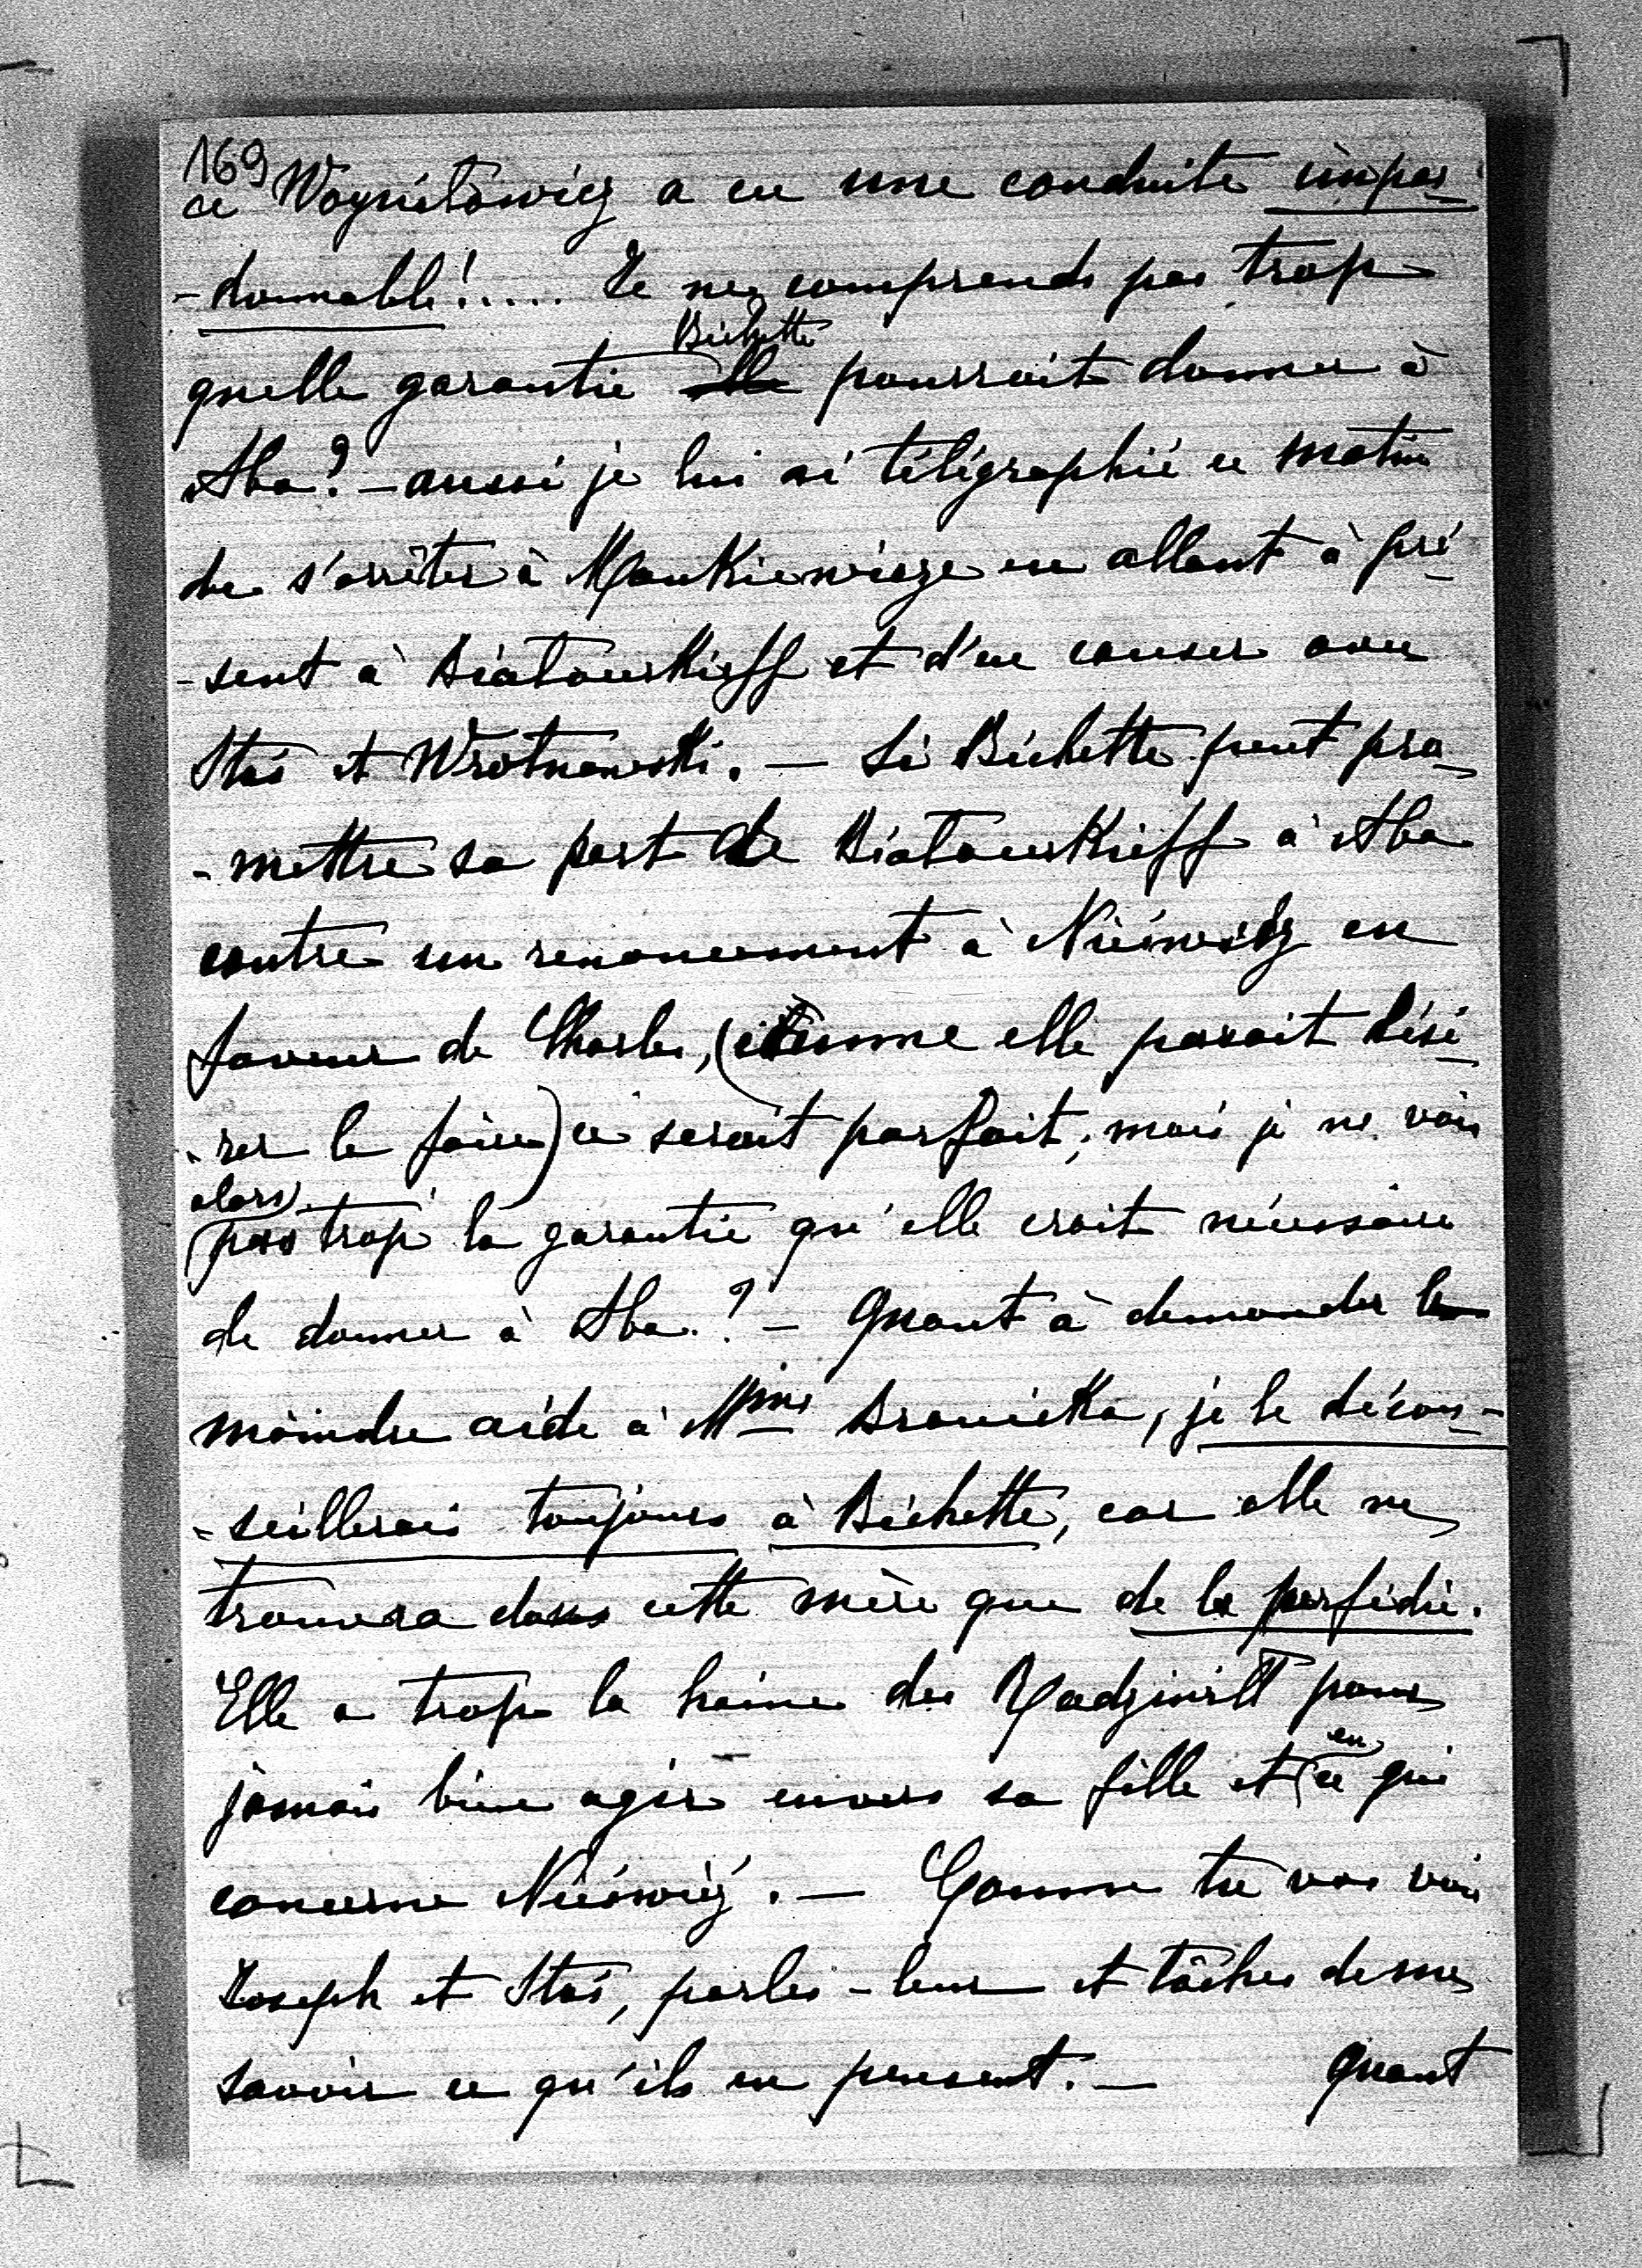 169
ce Woyniłowicz a eu une conduite impar-
-donnable!..... Je ne comprends pas trop
Bichette
quelle garantie elle pourrait donner à
Aba? — aussi je lui ai télégraphié ce matin
de s'arrêter à Mankiewicze en allant à pré-
-sent à Białocerkieff et d'en causer avec
Staś et Wrotnowski. — Si Bichette peut pro-
-mettre sa part de Białocerkieff à Aba
contre un renoncement à Nieśwież en
faveur de Charles, (comme elle parait dési-
-rer le faire) ce serait parfait, mais je ne vois
alors
pas trop la garantie qu'elle croit nécessaire
de donner à Aba? — Quant à demander la
moindre aide à Mme Branicka, je le décon-
-seillerais toujours à Bichette, car elle ne
trouvera dans cette mère que de la perfidie.
Elle a trop la haine des Radziwiłł pour
jamais bien agir envers sa fille et
en
ce qui
concerne Nieśwież. — Comme tu vas voir
Joseph et Staś, parles-leur et tâches de me
savoir ce qu'ils en pensent. — Quant